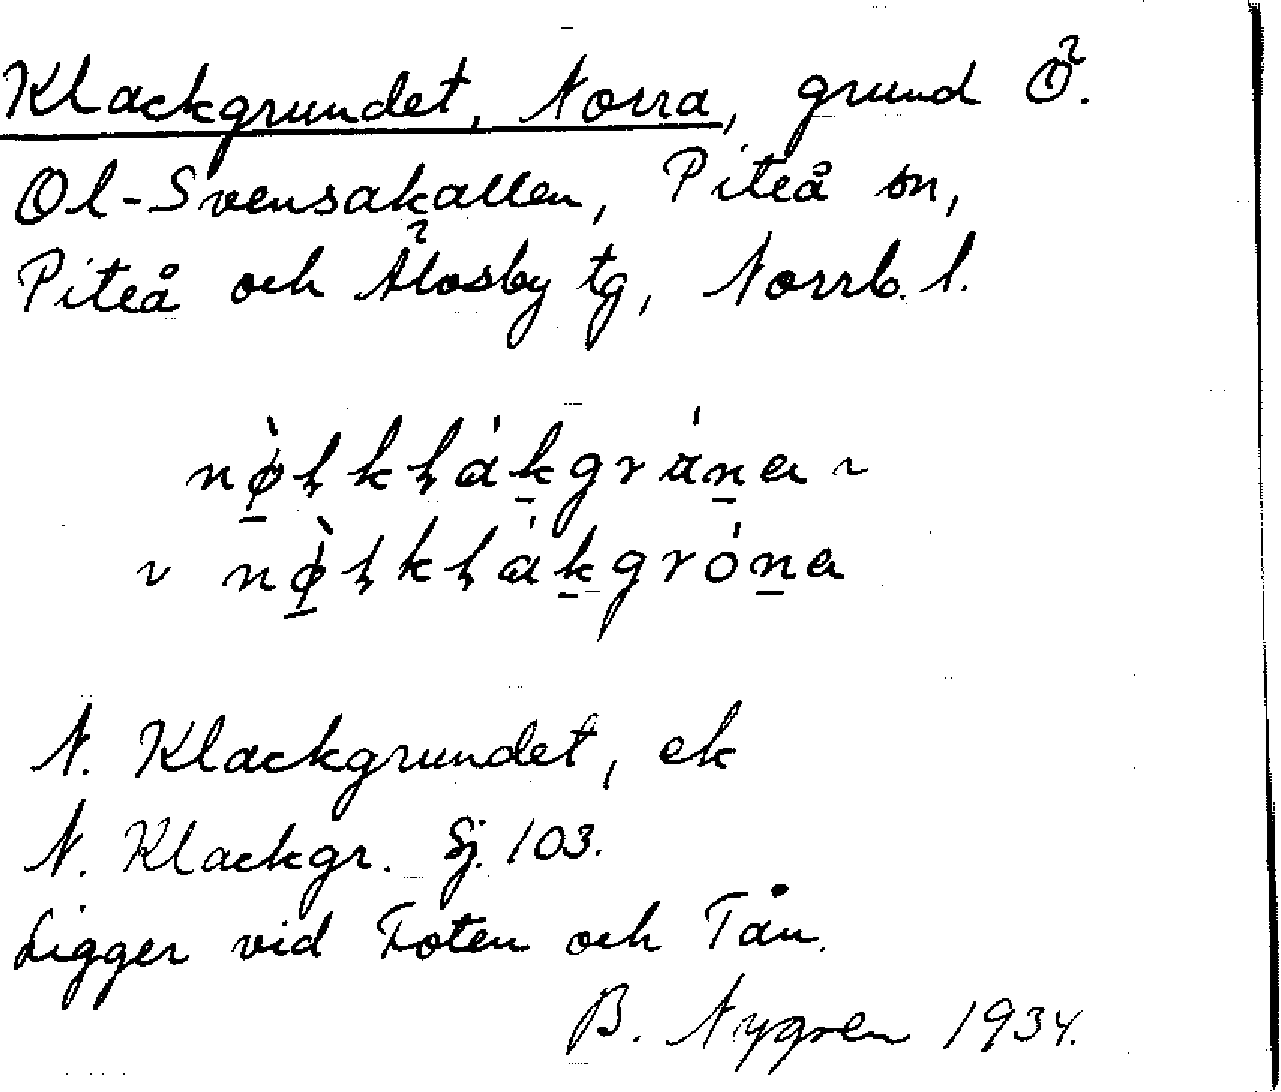 Klackgrundet, Norra, grund Ö.
Ol-Svensakallen, Piteå sn,
Piteå och Älvsby tg, Norrb. l.
N. Klackgrundet, ek
N. Klackgr. Sj. 103.
Ligger vid Foten och Tån.
B. Nygren 1934.